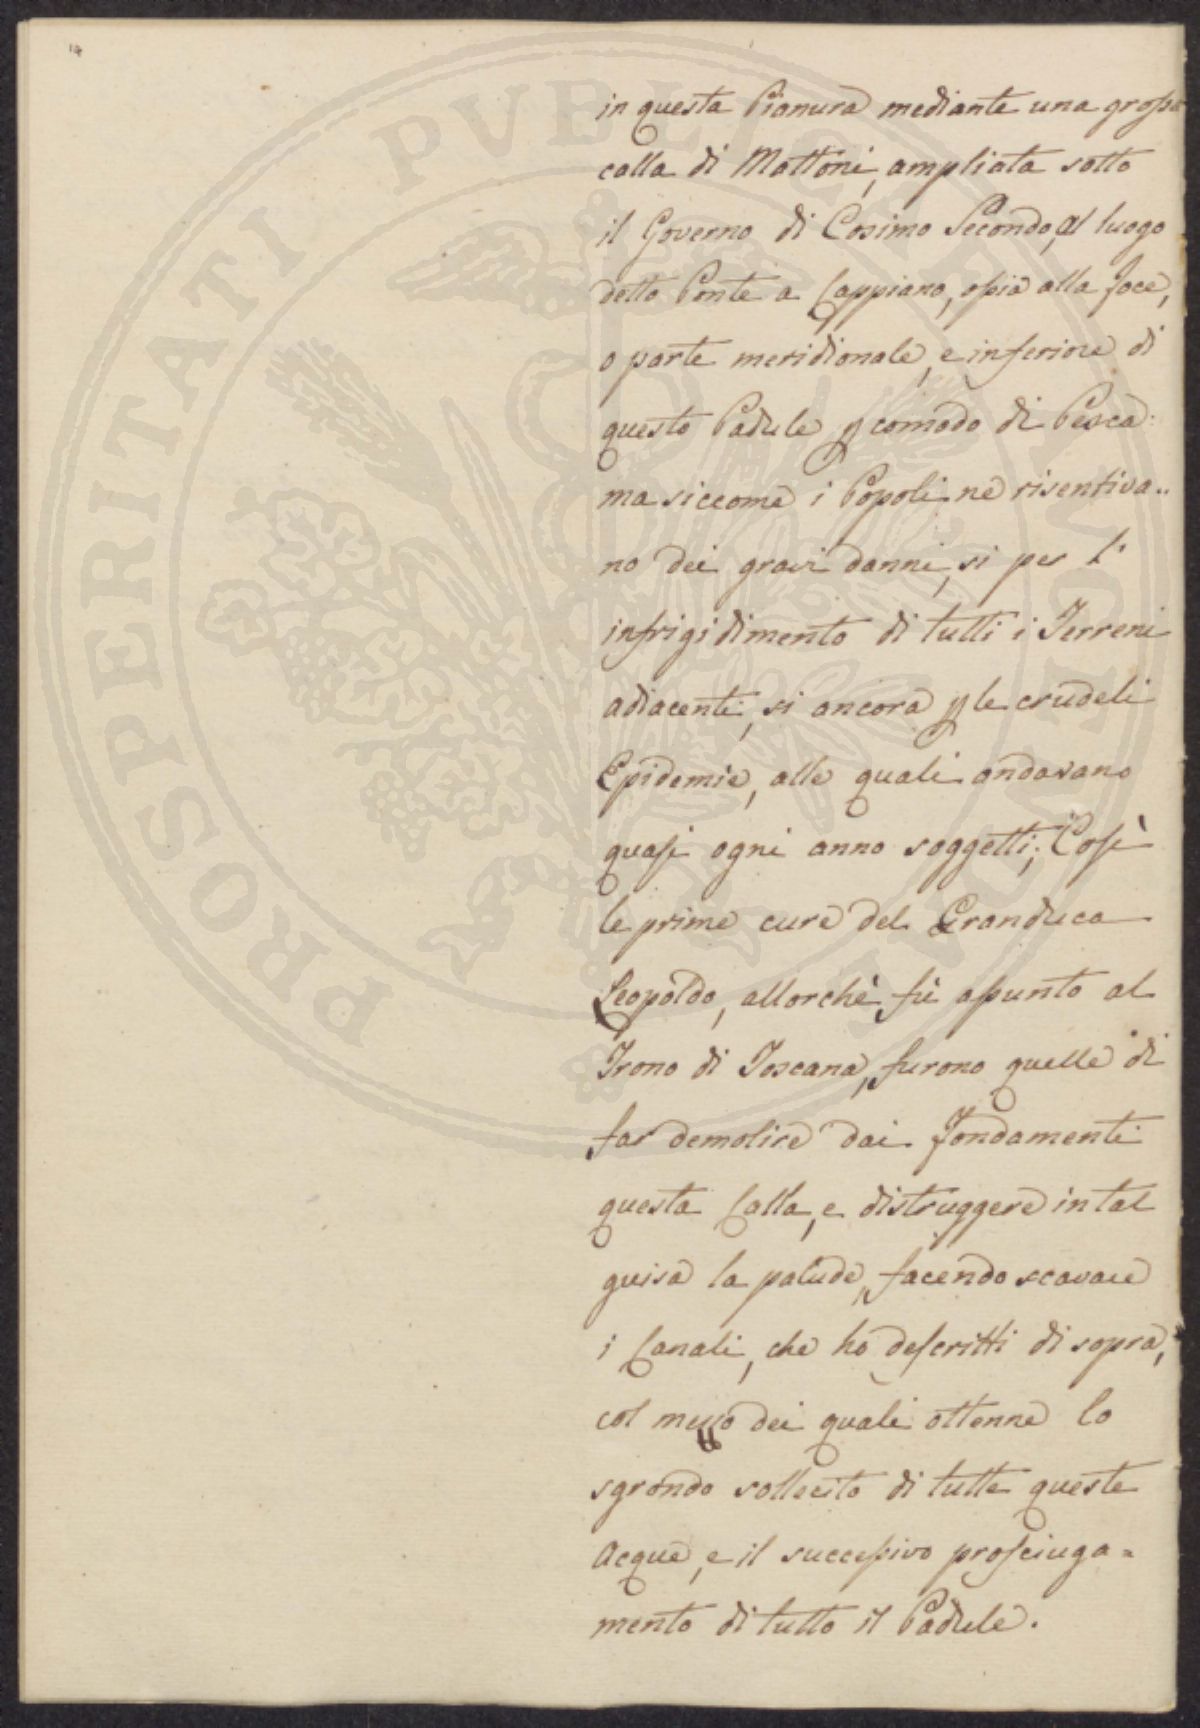 in questa Pianura mediante una grossa
calla di Mattoni, ampliata sotto
il Governo di Cosimo Secondo, al luogo
detto Ponte a Cappiano, ossia alla foce,
o parte meridionale, e inferiore di
questo Padule p comodo di Pesca:
ma siccome i Popoli ne risentiva..
no dei gravi danni, si per l'
infrigidimento di tutti i Terreni
adiacenti, si ancora p le crudeli
Epidemie, alle quali andavano
quasi ogni anno soggetti; Così
le prime cure del Granduca
Leopoldo, allorchè fù assunto al
Trono di Toscana, furono quelle di
far demolire dai fondamenti
questa Calla, e distruggere in tal
guisa la palude, facendo scavare
i Canali, che ho descritti di sopra,
col mezzo dei quali ottenne lo
sgrondo sollecito di tutte queste
Acque, e il successivo prosciuga=
mento di tutto il Padule.
PROSPERITATI PVBLICAE